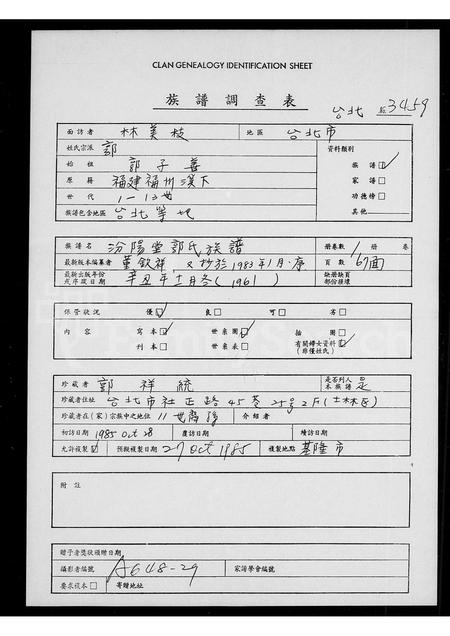 CLAN GENEALOGY IDENTIFICATION SHEET
族譜調查表
台北 3459
面訪者 林美枝 地區 台北市
姓氏宗派 郭 資料類別
始祖 郭子善 族譜☑
原籍 福建福州漢下 家譜□
世代 1-13世 功德榜□
族譜包含地區 台北等地 其他
族譜名 汾陽堂郭氏族譜 冊卷數 1 冊 卷
最新版本編纂者 董欽祥, 又抄於1983年1月·序 頁數 67面
最新出版年份或序跋日期 辛丑年十一月冬(1961) 缺冊缺頁部份損壞
保管狀況 優☑ 良□ 可□ 劣□
內容 寫本☑ 世系圖☑ 插圖□
刊本□ 世系表□ 有關婦女資料☑(非僅姓氏)
珍藏者 郭祥統 是否列入本族譜 是
珍藏者住址 台北市社正路45巷25号2F(士林区)
珍藏者在(家)宗族中之地位 11世裔孫 介紹者
初訪日期 1985 Oct 28 覆訪日期 續訪日期
允許複製☑ 預擬複製日期 27 Oct 1985 複製地點 基隆市
附註
贈予者獎狀頒贈日期
攝影者編號 A648-29 家譜學會編號
要求複本□ 寄贈地址